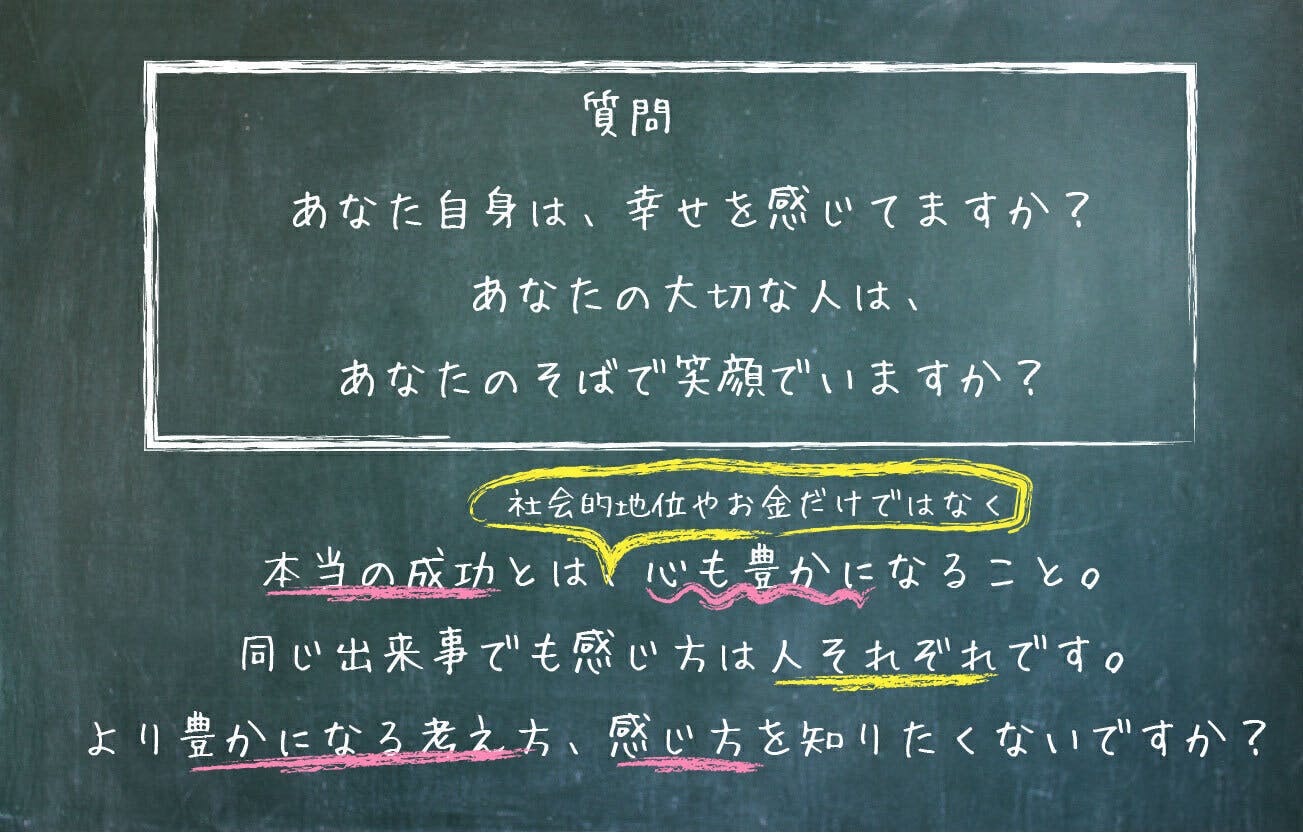 質問
あなた自身は、幸せを感じてますか？
あなたの大切な人は、
あなたのそばで笑顔でいますか？
社会的地位やお金だけではなく
本当の成功とは、心も豊かになること。
同じ出来事でも感じ方は人それぞれです。
より豊かになる考え方、感じ方を知りたくないですか？